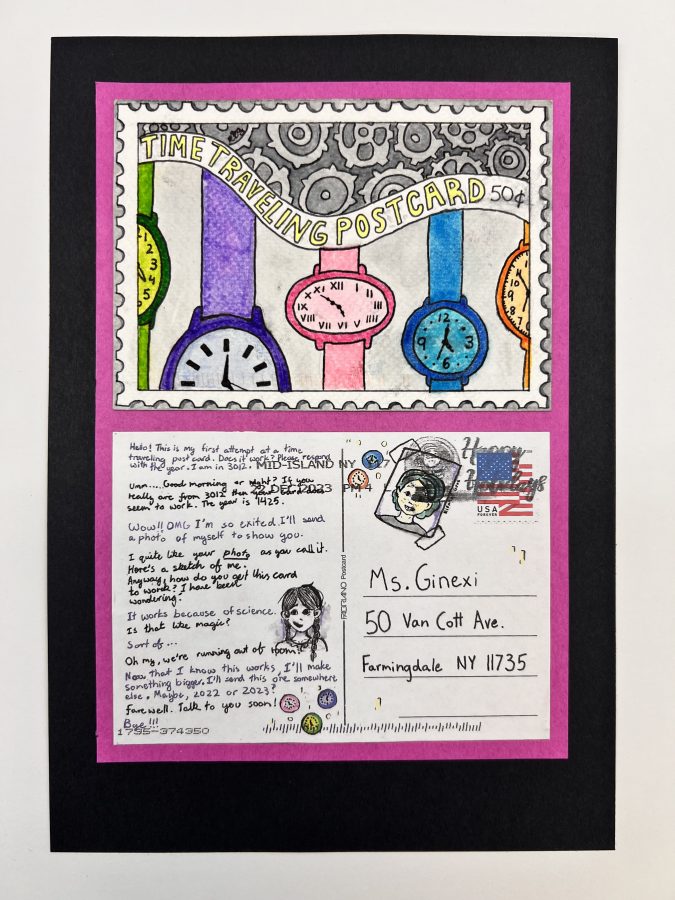 TIME TRAVELING POSTCARD 50¢
Hello! This is my first attempt at a time
traveling postcard. Does it work? Please respond
with the year. I am in 3012.
MID-ISLAND NY 117
DEC 2023 PM 4
Umm.... Good morning or night? If you
really are from 3012 then your card does
seem to work. The year is 1425.
Wow!! OMG I'm so exited. I'll send
a photo of myself to show you.
I quite like your photo as you call it.
Here's a sketch of me.
Anyway, how do you get this card
to work? I have been
wondering.
It works because of science.
Is that like magic?
Sort of...
Oh my, we're running out of room!
Now that I know this works, I'll make
something bigger. I'll send this one somewhere
else. Maybe, 2022 or 2023?
farewell. Talk to you soon!
Bye!!!
1795-374350
Postcard
Happy
USA
FOREVER
Ms. Ginexi
50 Van Cott Ave.
Farmingdale NY 11735
XII I II III IV V VI VII VIII IX X XI
12 3 6 9